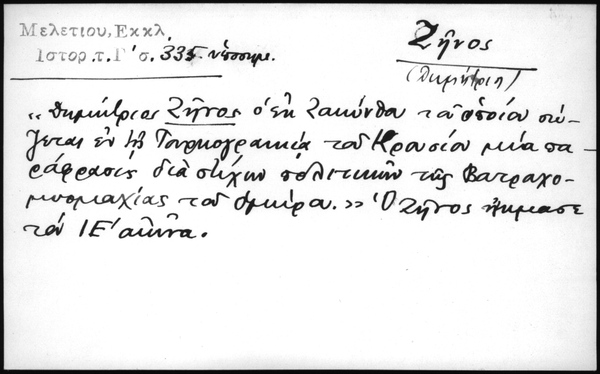 Μελετίου, Εκκλ.
Ιστορ. τ. Γ' σ. 335. υποσημ.
Ζῆνος
(Δημήτριος)
„Δημήτριος Ζῆνος ὁ ἐκ Ζακύνθου τοῦ ὁποίου σώ-
ζεται ἐν τῇ Τουρκογραικίᾳ τοῦ Κρουσίου μία πα-
ράφρασις διὰ στίχων πολιτικῶν τῆς Βατραχο-
μυομαχίας τοῦ Ὁμήρου.» Ὁ Ζῆνος ἤκμασε
τὸν ΙΕ' αἰῶνα.